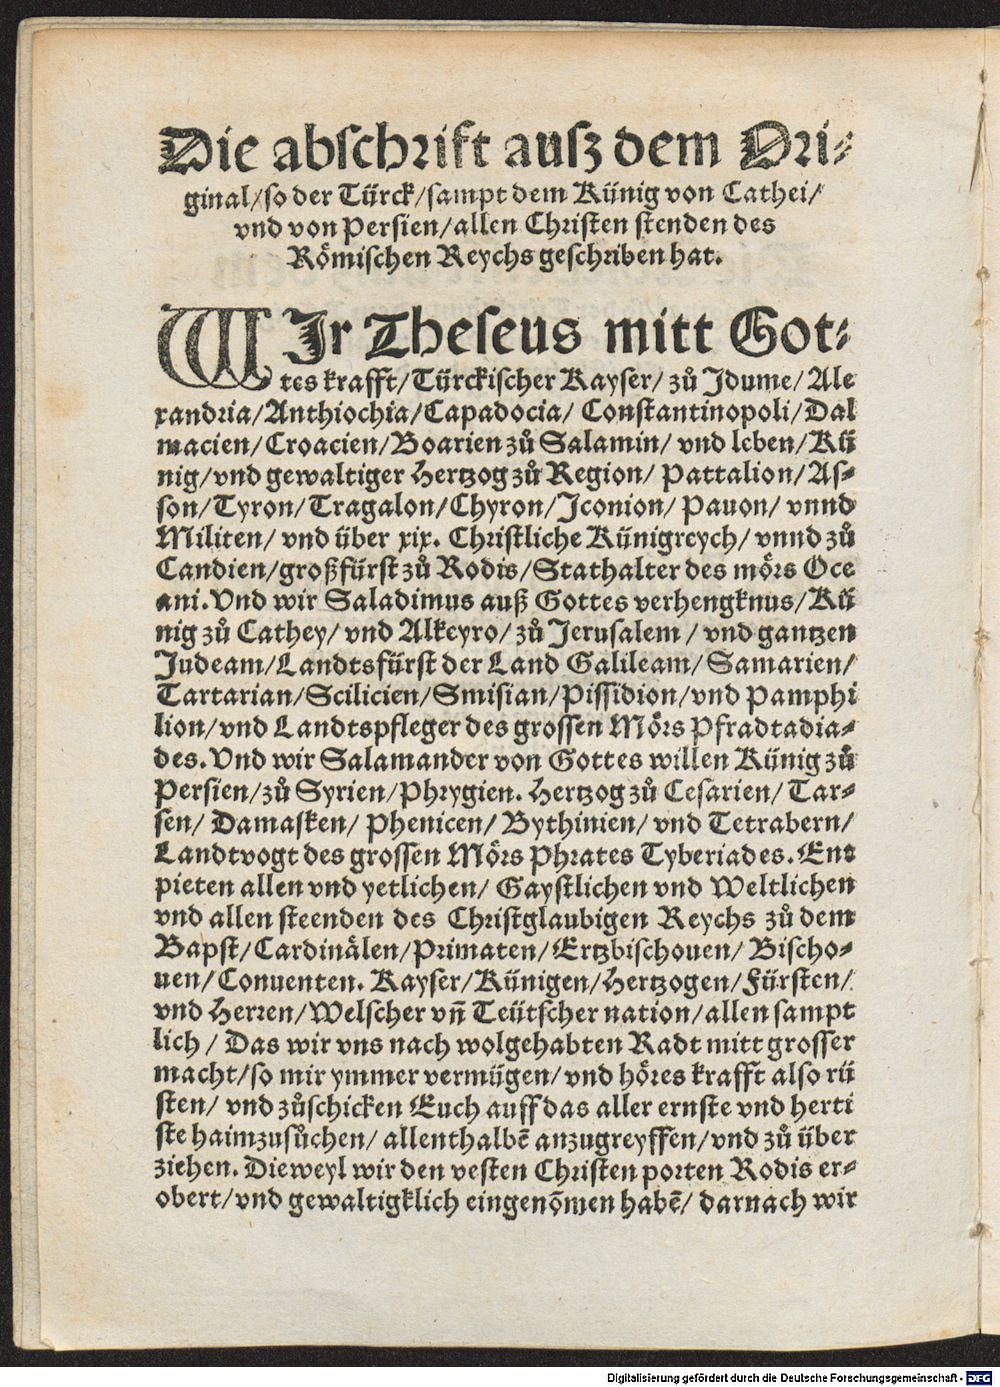 Die abſchrift auſz dem Ori⸗
ginal/ſo der Türck/ſampt dem Künig von Cathei/
vnd von Perſien/allen Chriſten ſtenden des
Römiſchen Reychs geſchriben hat.
WIr Theſeus mitt Got⸗
tes krafft/Türckiſcher Kayſer/ zů Idume/ Ale
xandria/Anthiochia/Capadocia/ Conſtantinopoli/Dal
macien/Croacien/Boarien zů Salamin/ vnd leben/Kü
nig/vnd gewaltiger Hertzog zů Region/ Pattalion/ Aſ⸗
ſon/Tyron/Tragalon/Chyron/Iconion/ Pauon/ vnnd
Militen/ vnd über xix. Chriſtliche Künigreych/ vnnd zů
Candien/großfürſt zů Rodis/Stathalter des mörs Oce
ani. Vnd wir Saladimus auß Gottes verhengknus/Kü
nig zů Cathey/ vnd Alkeyro/ zů Jeruſalem / vnd gantzen
Judeam/Landtsfürſt der Land Galileam/ Samarien/
Tartarian/Scilicien/Smiſian/Piſſidion/vnd Pamphi
lion/vnd Landtspfleger des groſſen Mörs Pfradtadia⸗
des. Vnd wir Salamander von Gottes willen Künig zů
Perſien/zů Syrien/Phrygien. Hertzog zů Ceſarien/ Tar⸗
ſen/ Damaſken/ Phenicen/ Bythinien/ vnd Tetrabern/
Landtvogt des groſſen Mörs Phrates Tyberiades. Ent
pieten allen vnd yetlichen/ Gayſtlichen vnd Weltlichen
vnd allen ſteenden des Chriſtglaubigen Reychs zů dem
Bapſt/Cardinälen/Primaten/Ertzbiſchouen/ Biſcho⸗
uen/Conuenten. Kayſer/Künigen/Hertzogen/Fürſten/
vnd Herren/Welſcher vñ Teütſcher nation/allen ſampt
lich / Das wir vns nach wolgehabten Radt mitt groſſer
macht/ſo mir ymmer vermügen/vnd höres krafft alſo rü
ſten/ vnd zůſchicken Euch auff das aller ernſte vnd herti
ſte haimzuſůchen/ allenthalbẽ anzugreyffen/vnd zů über
ziehen. Dieweyl wir den veſten Chriſten porten Rodis er⸗
obert/vnd gewaltigklich eingenõmen habẽ/ darnach wir
Digitalisierung gefördert durch die Deutsche Forschungsgemeinschaft - DFG